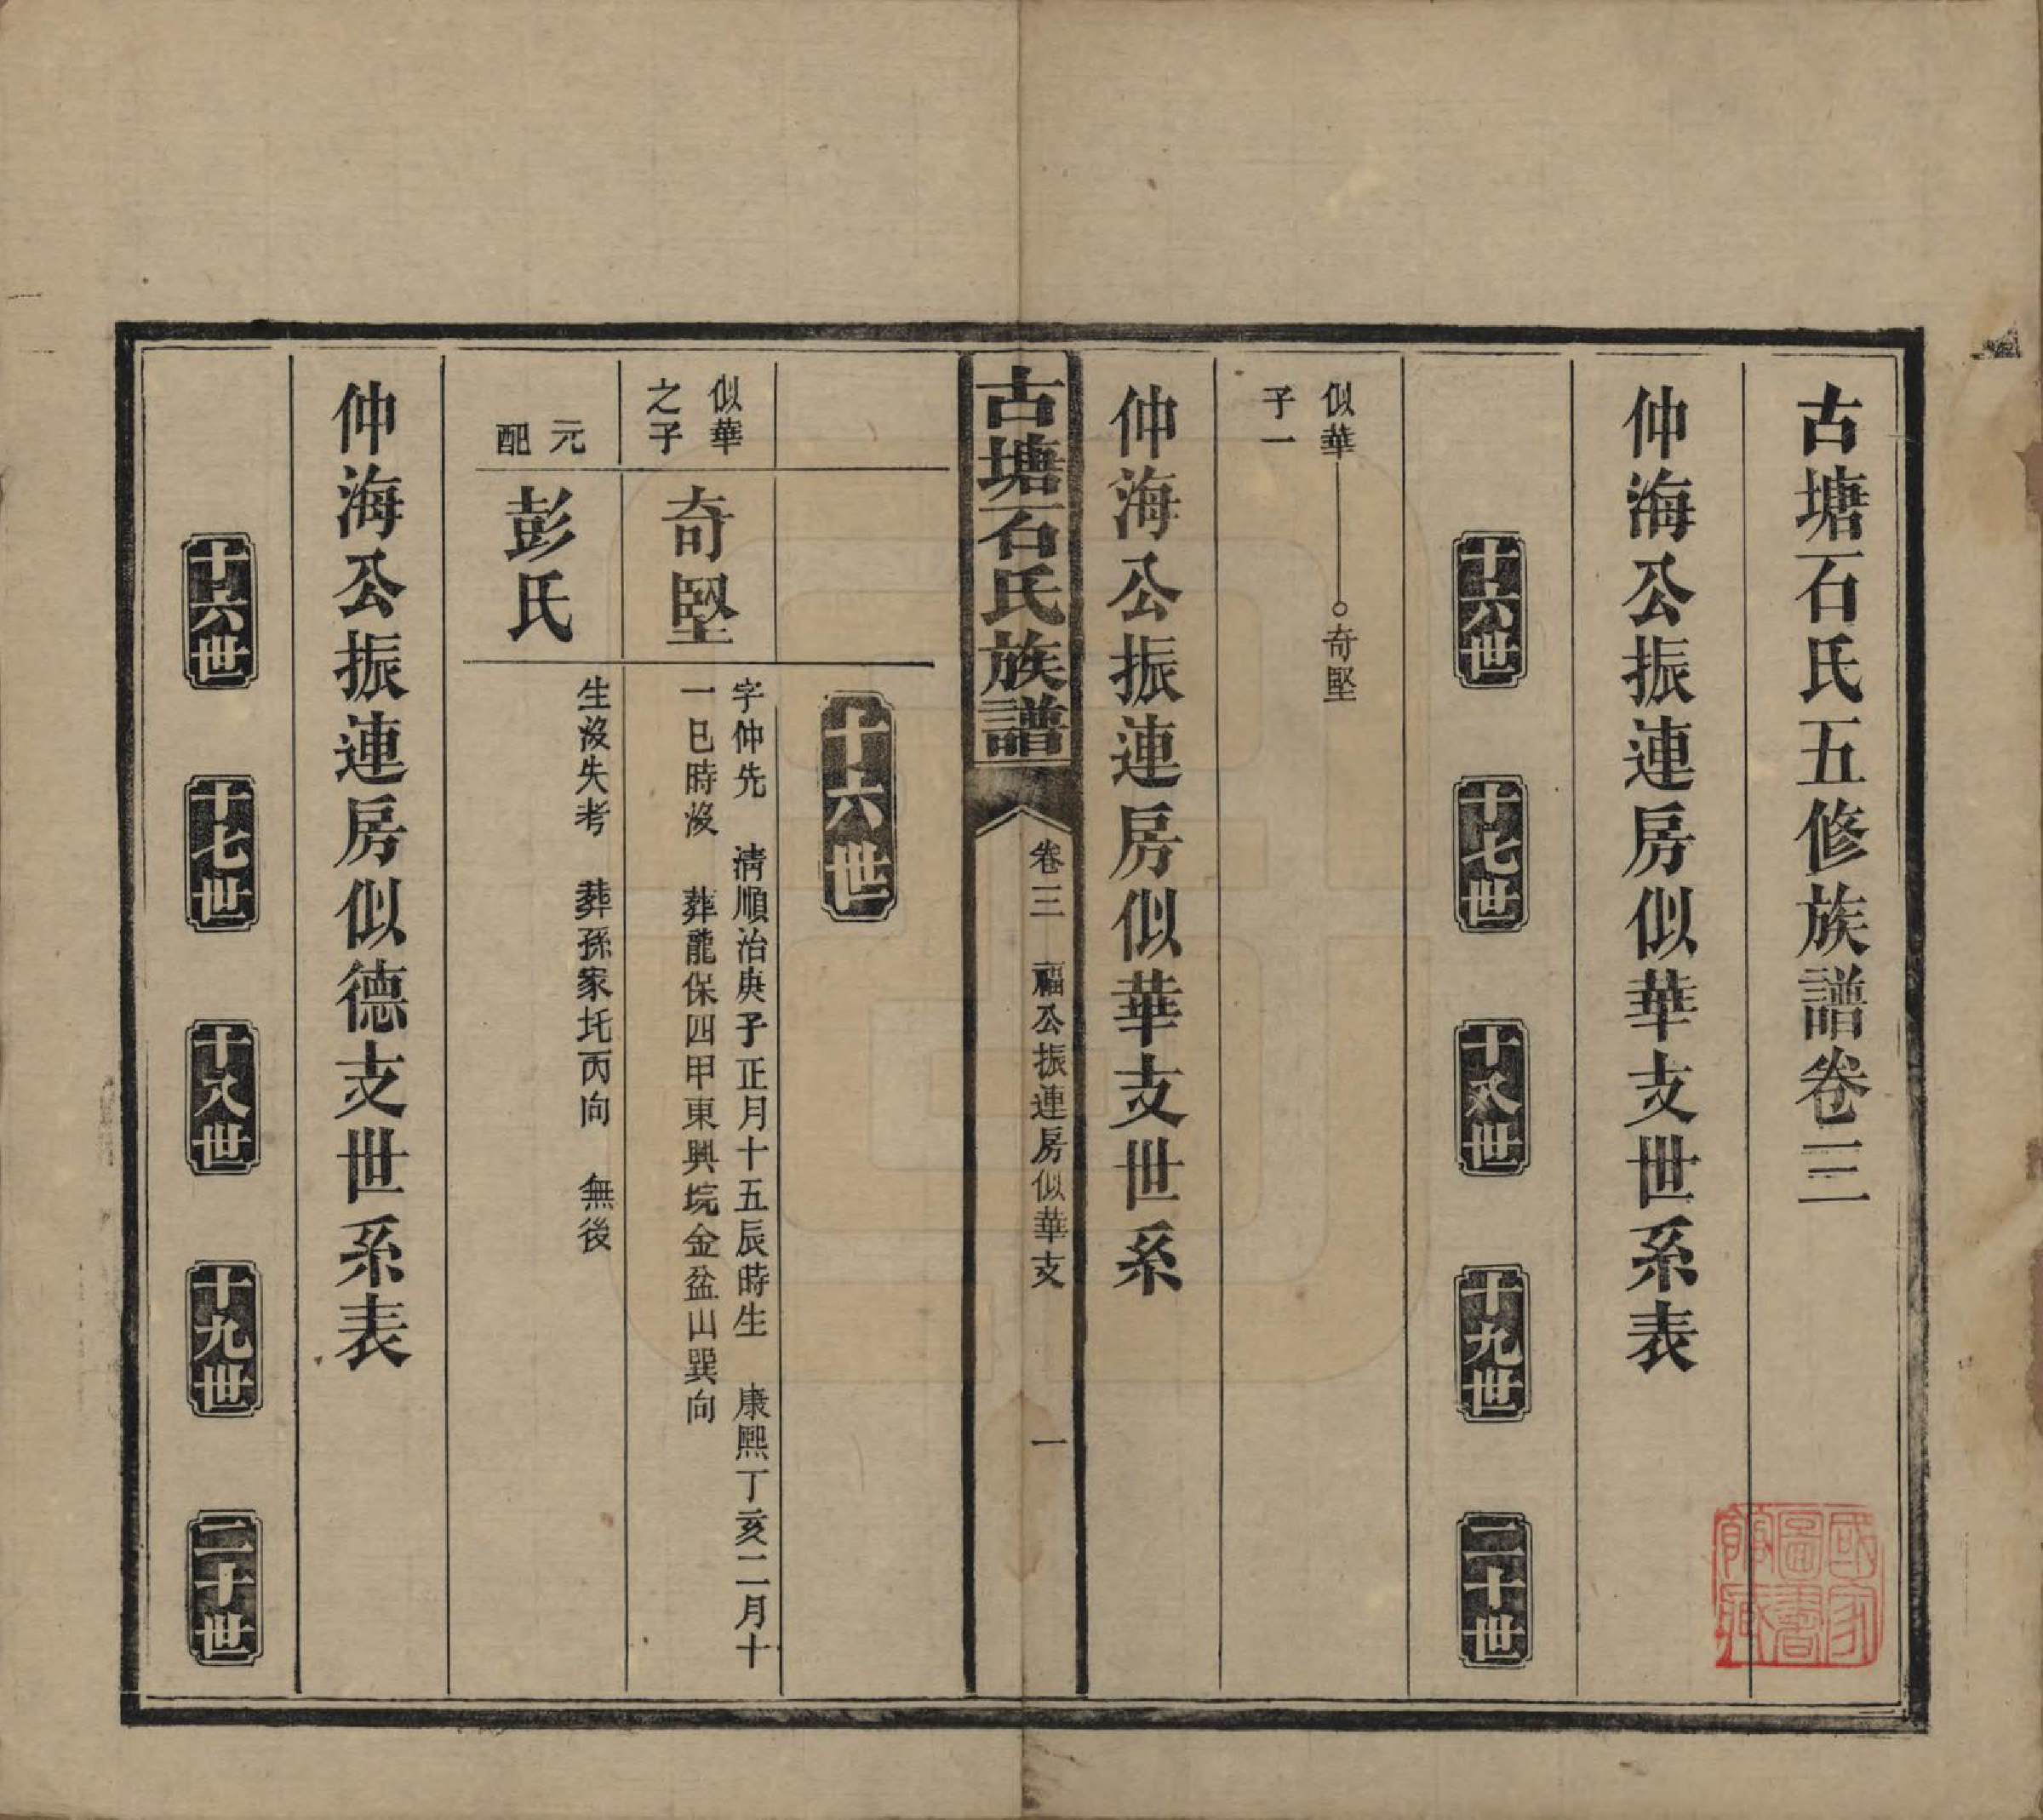 古塘石氏五修族譜卷三
仲海公振連房似華支世系表
十六世　十七世　十八世　十九世　二十世
似華　奇堅
子一
仲海公振連房似華支世系
古塘石氏族譜　卷三　福公振連房似華支　一
十六世
似華
之子
奇堅
字仲先　清順治庚子正月十五辰時生　康熙丁亥二月十
一巳時没　葬龍保四甲東興垸金盆山巽向
元
配
彭氏
生没失考　葬孫家圫丙向　無後
仲海公振連房似德支世系表
十六世　十七世　十八世　十九世　二十世
國家
圖書
館藏